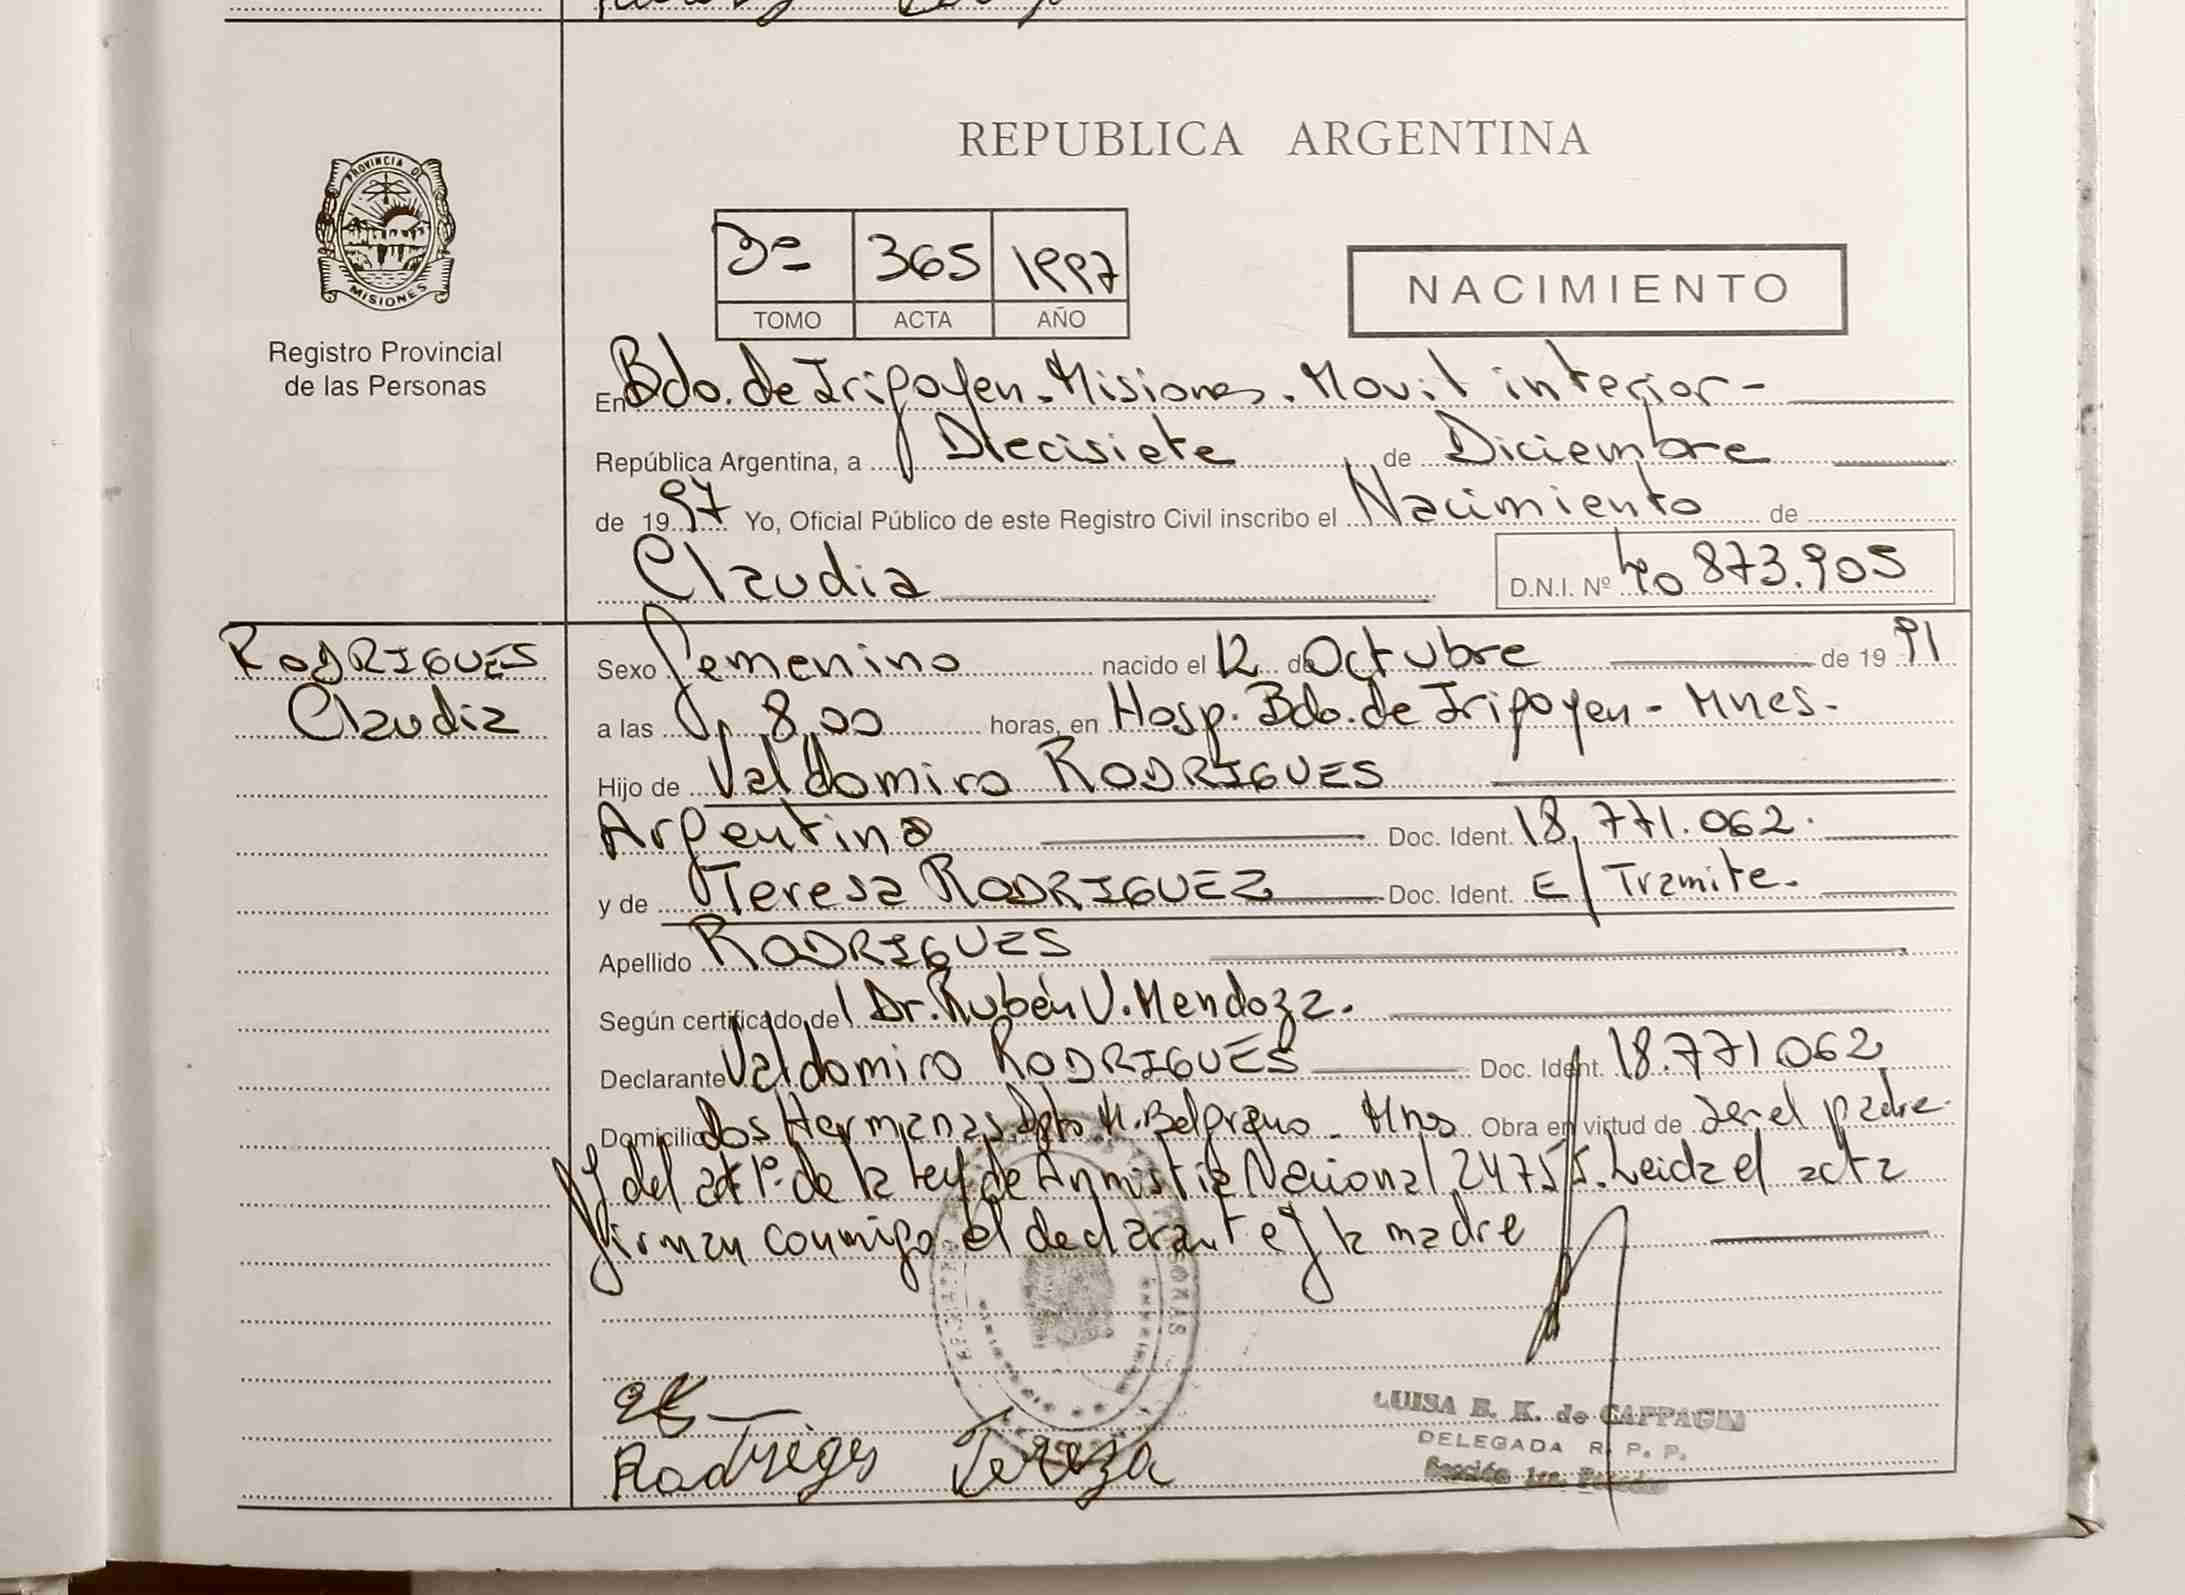 REPUBLICA ARGENTINA
PROVINCIA DE
MISIONES
Registro Provincial
de las Personas
3º 365 1997
TOMO ACTA AÑO
NACIMIENTO
En Bdo. de Irigoyen. Misiones. Movil interior-
República Argentina, a Diecisiete de Diciembre
de 1997 Yo, Oficial Público de este Registro Civil inscribo el Nacimiento de
Claudia D.N.I. Nº 40 873.905
RODRIGUES
Claudia
Sexo Femenino nacido el 12 de Octubre de 1991
a las 8,00 horas, en Hosp. Bdo. de Irigoyen - Mnes.
Hijo de Valdomiro RODRIGUES
Argentino Doc. Ident. 18.771.062.
y de Teresa RODRIGUEZ Doc. Ident. E/ Tramite.
Apellido RODRIGUES
Según certificado del Dr. Rubén V. Mendoza.
Declarante Valdomiro RODRIGUES Doc. Ident. 18.771.062
Domicilio Dos Hermanas Dpto M. Belgrano - Mnes Obra en virtud de ser el padre
y del art 1º de la Ley de Anmistia Nacional 24755. Leida el acta
firman conmigo el declarante y la madre
Rodriges Tereza
LUISA E. K. de CAPPAGLI
DELEGADA R. P. P.
Sección 1ra.